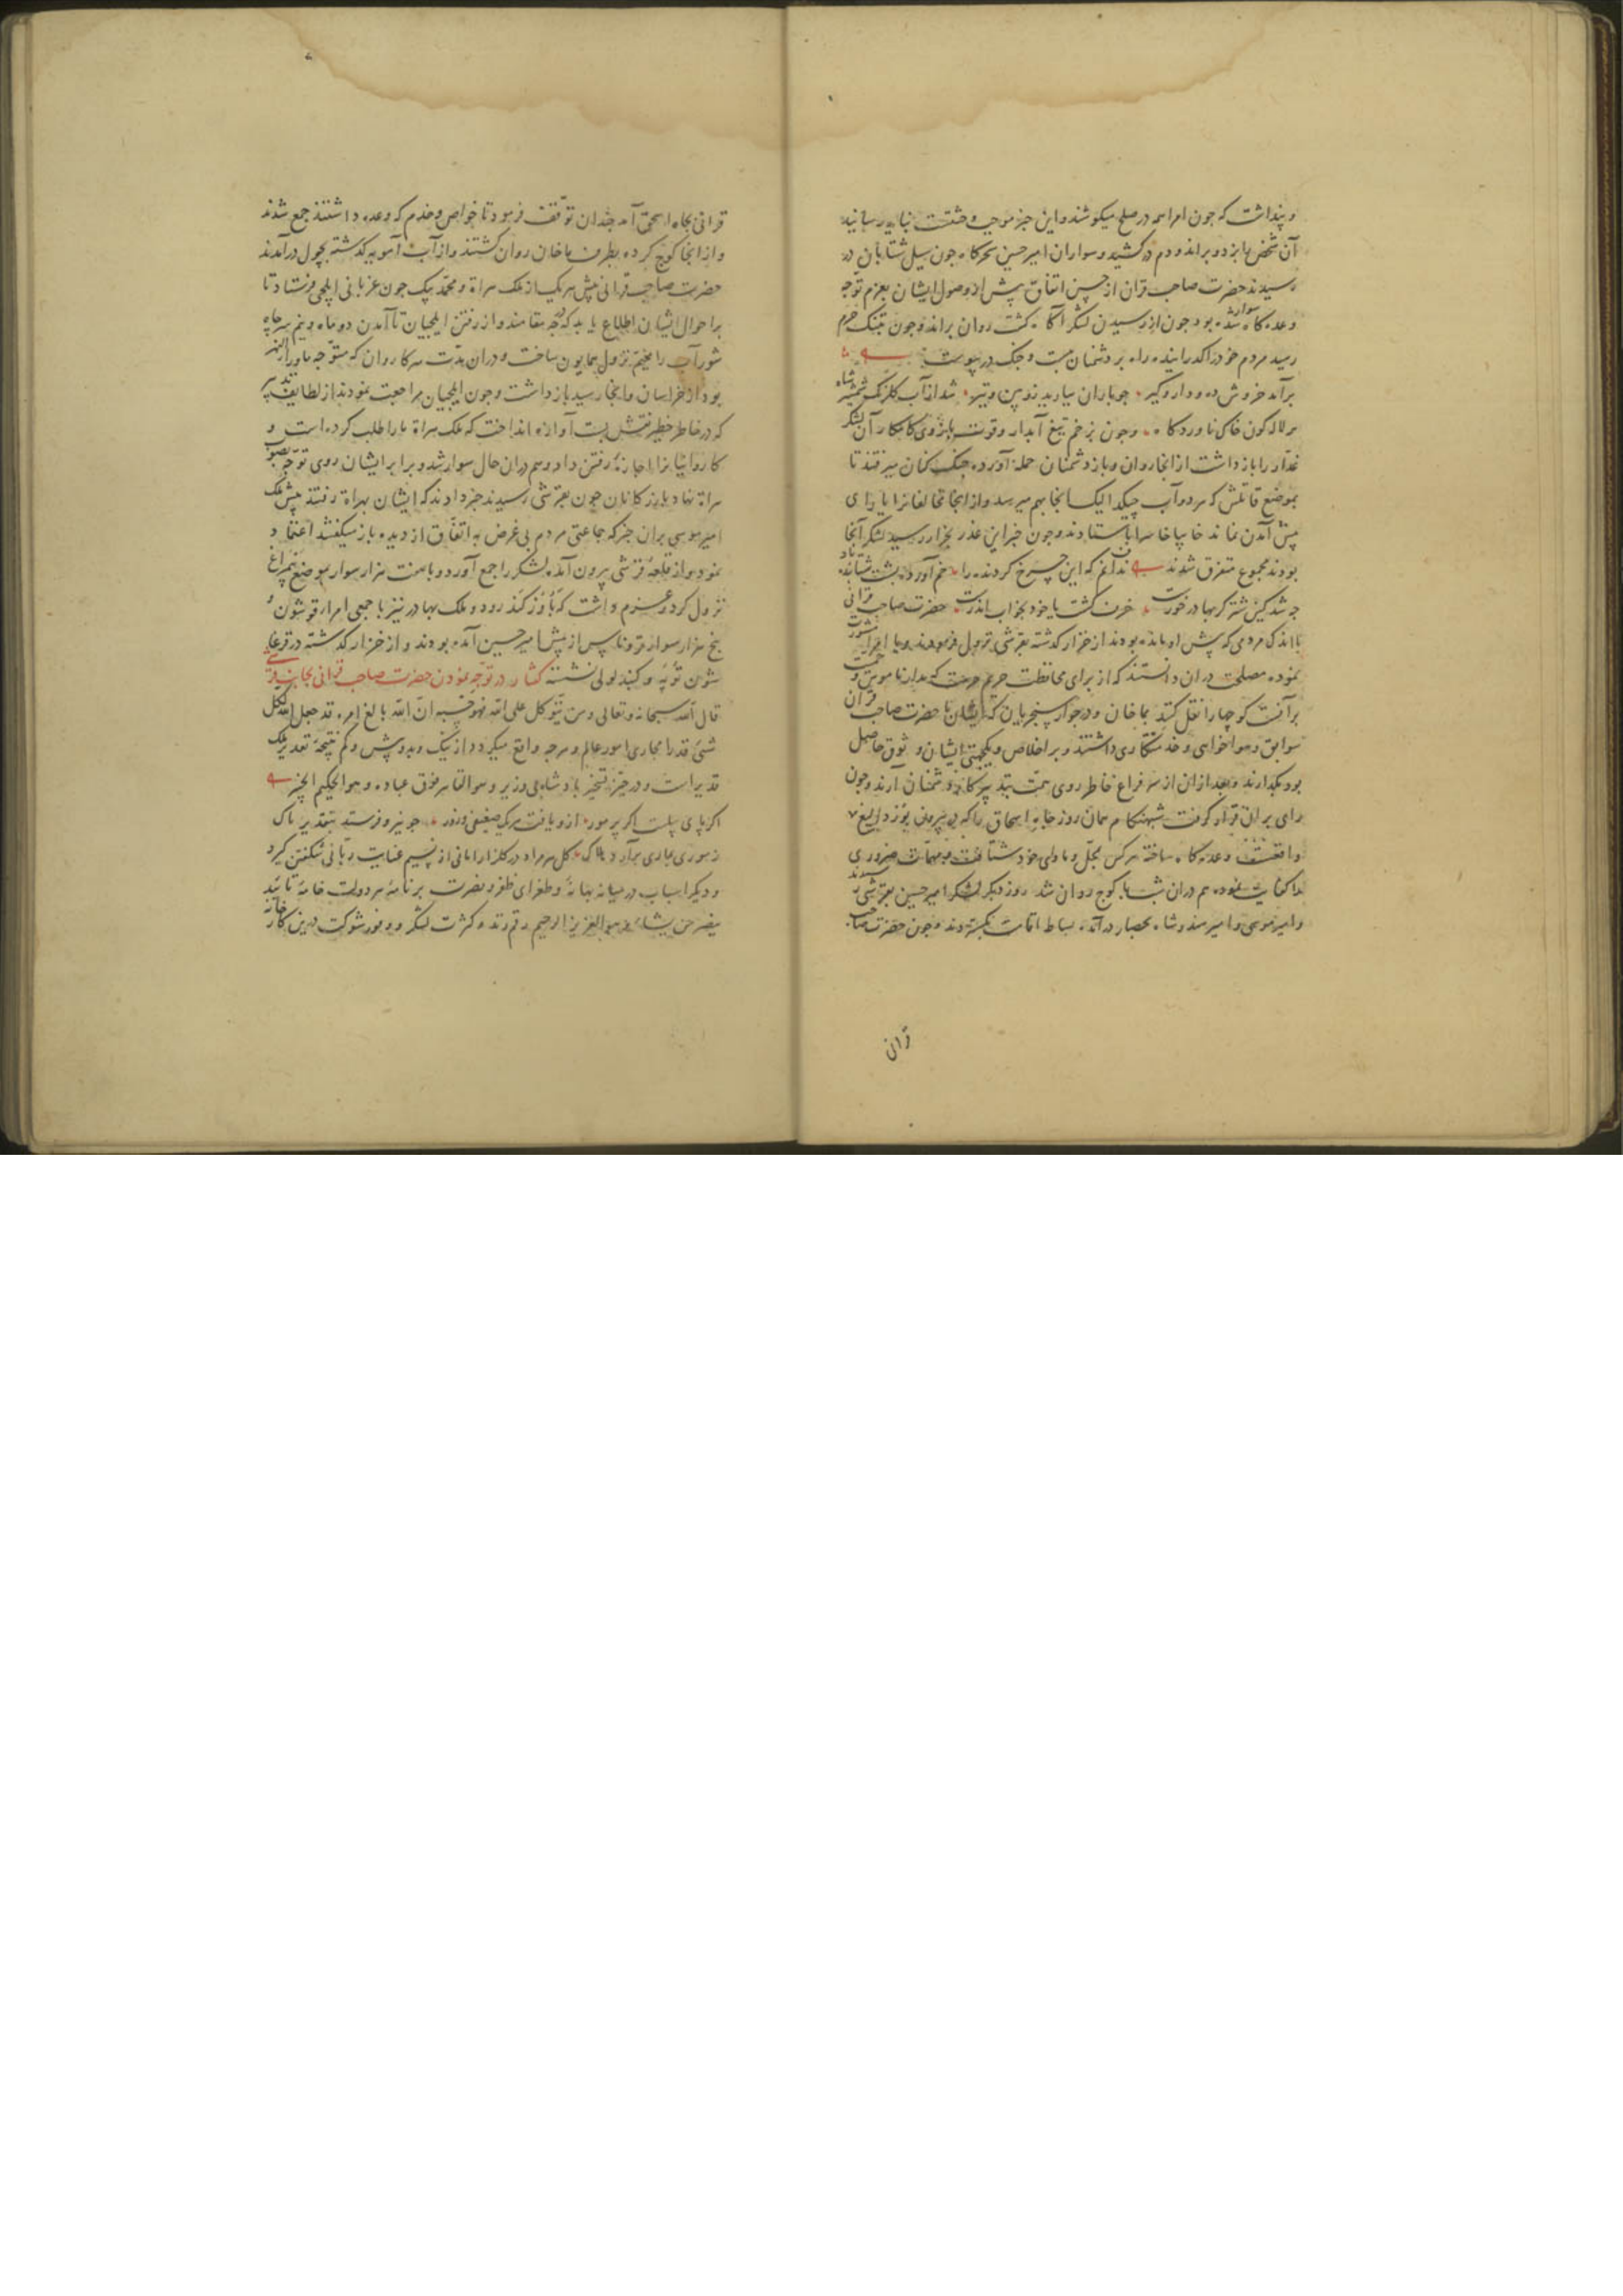 و پنداشت که چون امرا همه در صلح میکوشند و این خبر موجب وحشت
آن شخص را بزد و براند و دم درکشید و سواران امیر حسین سحرگاه چون سیل شتابان در
رسیدند حضرت صاحب قران از حسن اتفاق پیش از وصول ایشان بعزم توجه
وعده گاه سوار شده بود چون از رسیدن لشکر آگاه گشت روان براند و چون بتنک حرم
رسید مردم خود را گذرانیده راه بر دشمنان بست و جنک در پیوست
برآمد خروش ده و دار و گیر جو باران ببارید زوپین و تیر شد از آب
لاله کون خاک ناوردگاه و چون زخم تیغ آبدار وقوت بازوی کامکار آن لشکر
غدار را باز داشت از انجا روان و باز دشمنان حمله آورده جنک کنان میرفتند تا
بموضع که هر دو آب انجا بهم میرسد و از انجا مخالفانرا یارای
پیش آمدن نماند و چون خبر این غدر بخزار رسید لشکر آنجا
بودند مجموع متفرق شدند ندانم که این چرخ کردنده را خم آورده پشت
حضرت صاحب قرانی
با اندک مردمی که پیش او مانده بودند از خزار گذشته بقرشی نزول فرمودند و با امرا مشورت
نموده مصلحت دران دانستند که از برای محافظت حرم حرمت
کوچها را نقل کنند بماخان و در جوار سنجریان که ایشان با حضرت صاحب قران
سوابق هواخواهی و خدمتکاری داشتند و بر اخلاص و یکجهتی ایشان وثوق حاصل
بود بکذارند و بعد ازان از سر فراغ خاطر روی همت بتدبیر کار دشمنان آرند و چون
رای بران قرار گرفت شبهنکام همان روز چاه اسحاق را که بیرون
واقعست وعده گاه ساخته هر کس بمحل و ماوای خود شتافت و مهمات ضروری
کفایت نموده هم دران شب با کوچ روان شد روز دیکر لشکر امیر حسین بقرشی رسیدند
و امیر موسی و امیر هندو شاه بحصار درآمده بساط اقامت بکستردند و چون حضرت صاحب
قرانی
قرانی بچاه اسحق آمد چندان توقف فرمود تا خواص و خدم که وعده داشتند جمع شدند
و از انجا کوچ کرده بطرف ماخان روان کشتند و از آب آمویه گذشته بچول درآمدند
حضرت صاحب قرانی پیش هر یک از ملک هراة و محمد بیک جون غربانی ایلچی فرستاد تا
بر احوال ایشان اطلاع یابد که در چه مقامند و از رفتن ایلچیان تا آمدن دو ماه و نیم سر چاه
شورآب را مخیم نزول همایون ساخت و دران مدت هر کاروان که متوجه ماوراالنهر
بود از خراسان و انجا رسید باز داشت و چون ایلچیان مراجعت نمودند از لطایف تدبیر
که در خاطر خطیر نقش بست آوازه انداخت که ملک هراة ما را طلب کرده است و
کاروانیانرا اجازت رفتن داد و هم دران حال سوار شد و برابر ایشان روی توجه بصوب
هراة نهاد بازرکانان چون بقرشی رسیدند خبر دادند که ایشان بهراة رفتند پیش ملک
امیر موسی بران خبر که جماعتی مردم بی غرض به اتفاق از دیده باز میگفتند اعتماد
نمود و از قلعه قرشی بیرون آمده لشکر را جمع آورد و با هفت هزار سوار بموضع
نزول کرد و عزم داشت که رود و ملک بهادر نیز با جمعی امرا قوشون
پنج هزار سوار قروناس از پیش امیر حسین آمده بودند و از خزار گذشته در
و کنبد لولی نشسته گفتار در توجه نمودن حضرت صاحب قرانی بجانب قرشی
قال الله سبحانه و تعالی ومن یتوکل علی الله فهو حسبه ان الله بالغ امره قد جعل الله لکل
شیء قدرا مجاری امور عالم و هر چه واقع میکردد از نیک و بد و بیش و کم نتیجه تقدیر ملک
قدیر است و در حیز تسخیر پادشاه بی وزیر وهو القاهر فوق عباده وهو الحکیم الخبیر
اکر پای پیلست اکر پر مور ازو یافت هر یک ضعیفی و زور جو نیرو فرستد بتقدیر پاک
ز موری بماری برآرد هلاک کل مراد در کلزار امانی از نسیم عنایت ربانی شکفتن کیرد
و دیکر اسباب در میانه بهانه و طغرای ظفر و نصرت بر نامه هر دولت خامه تایید
ینصر من یشاء وهو العزیز الرحیم رقم زند و کثرت لشکر و وفور شوکت درین کارخانه